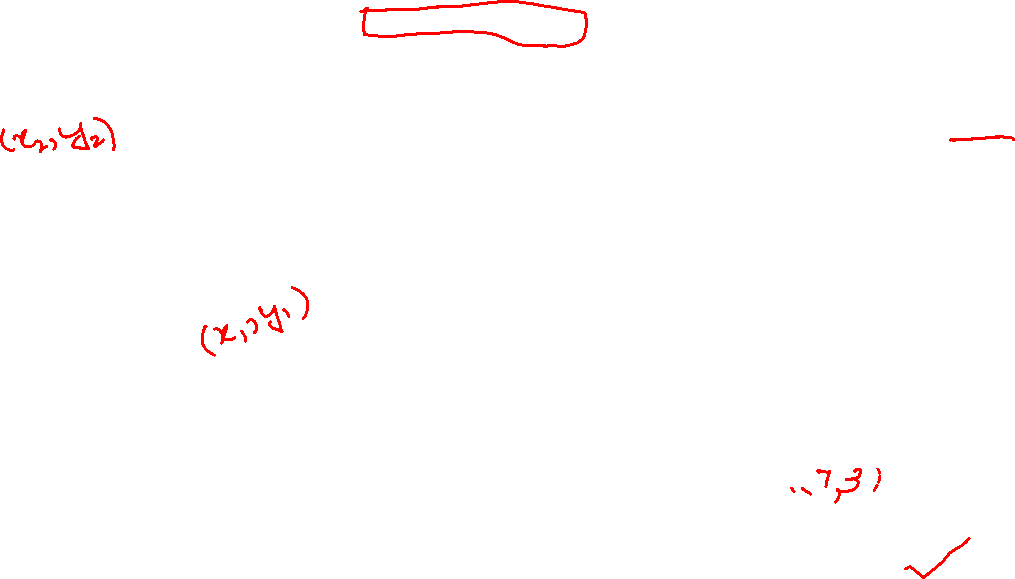 (x₂, y₂)
(x₁, y₁)
7, 3)